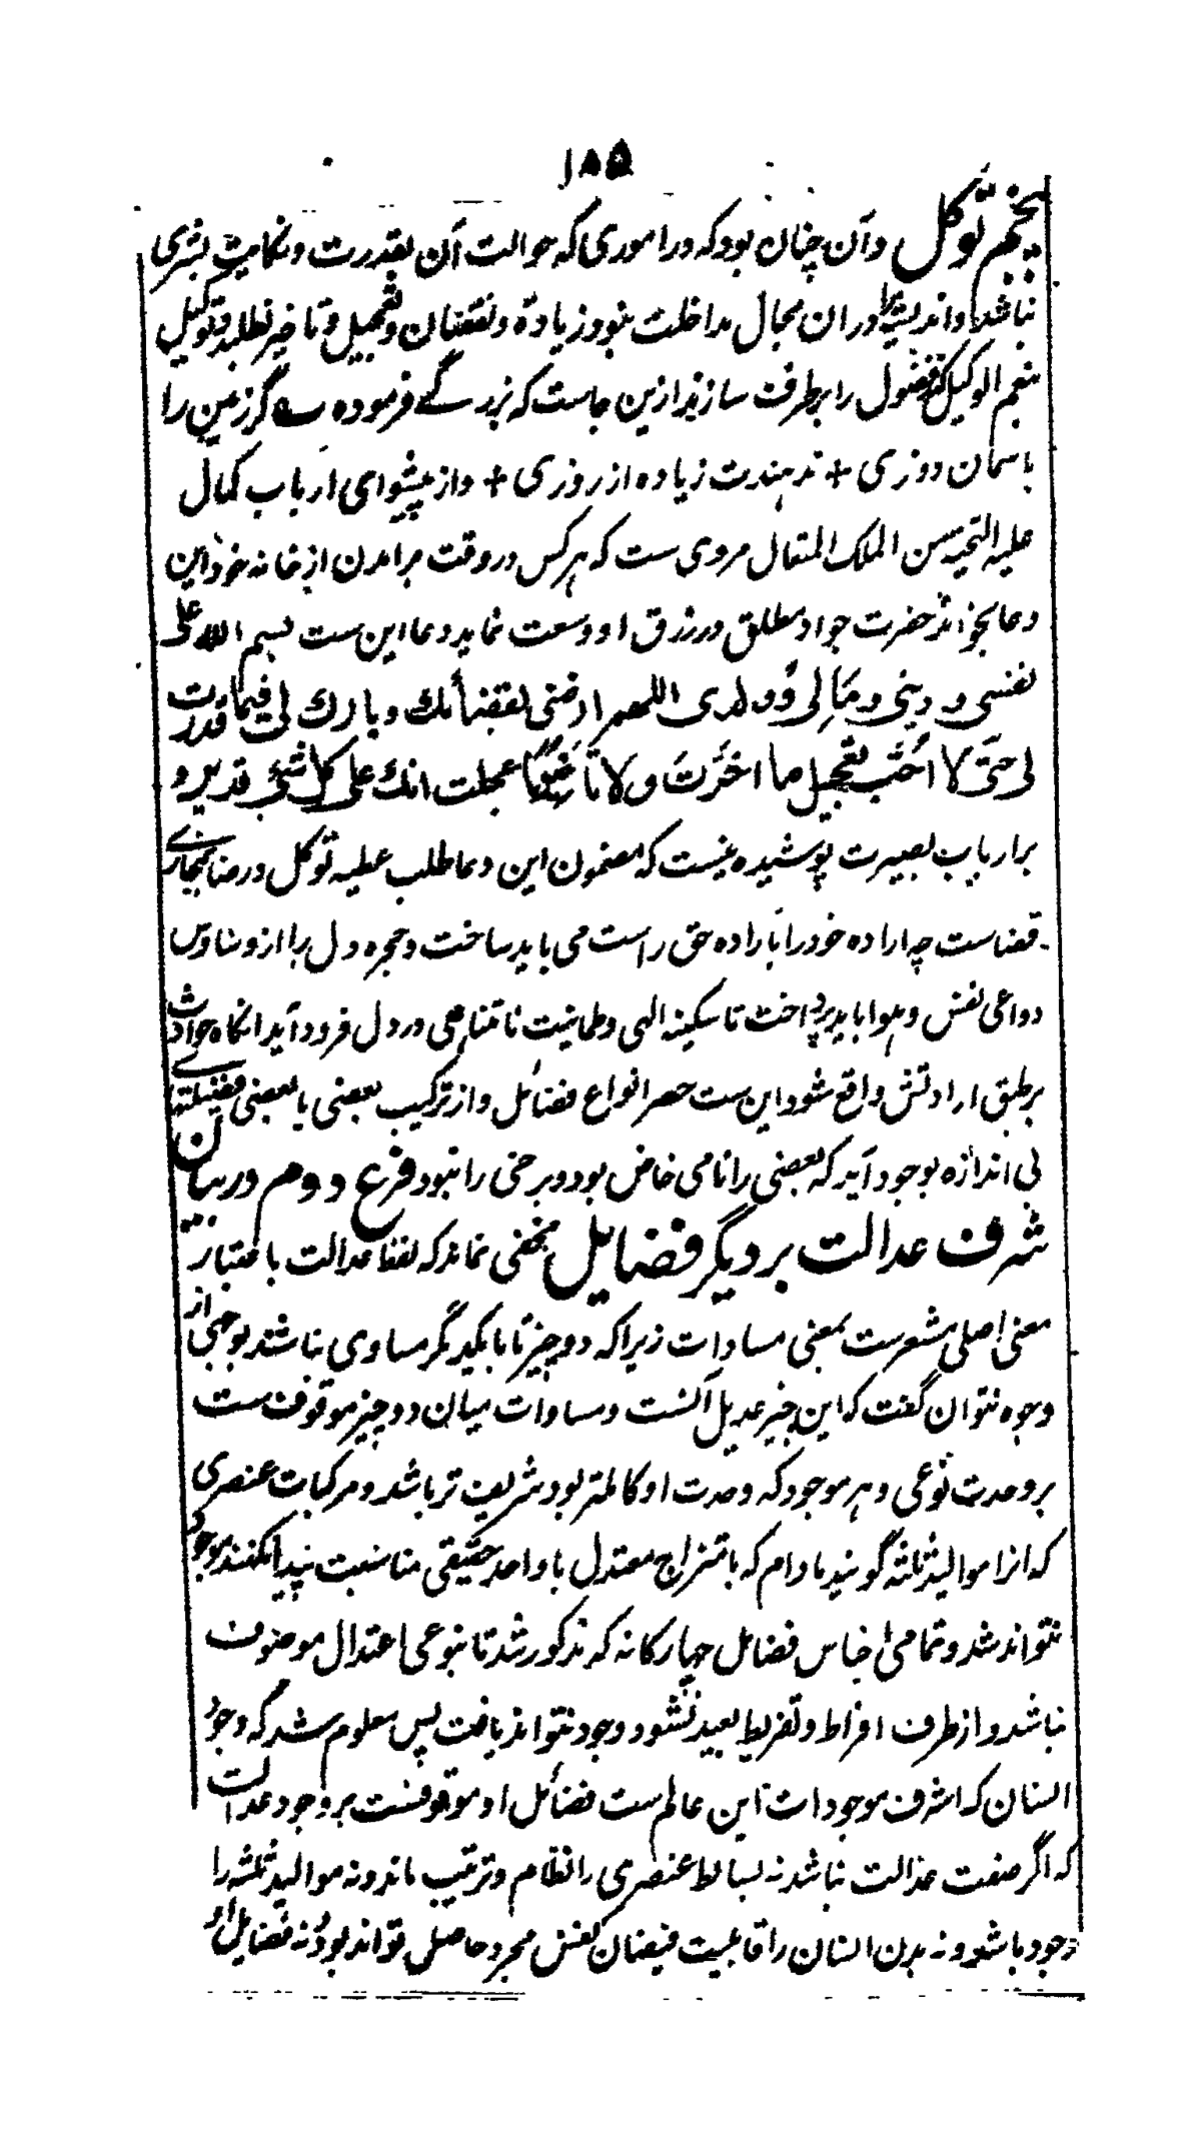 ۱۸۵
پنجم توکل و آن چنان بود که در اموری که حوالت آن بقدرت و کفایت بشری
نباشد و اندیشه را دران مجال مداخلت نبود زیاده و نقصان و تعجیل و تاخیر نطلبد و توکیل
نعم الوکیل فضول را برطرف سازند ازین جاست که بزرگے فرموده ے گر زمین را
باسمان دوزی + ندهندت زیاده از روزی + و از پیشوای ارباب کمال
علیه التحیة من الملک المتعال مروی ست که هر کس در وقت برامدن از خانه خود این
دعا بخواند حضرت جواد مطلق در رزق او وسعت نماید دعا این ست بسم الله علی
نفسی و دینی و مَا لِی وَ ولدی اللهم ارضنی بقضائک و بارک لی فیما قدرت
لی حتی لا اُحبّ تعجیل ما اخّرتَ ولا تاخیر ما عجلت انک علی کل شئ قدیر و
بر ارباب بصیرت پوشیده نیست که مضمون این دعا طلب عطیه توکل و رضا بمجاری
قضاست چه اراده خود را باراده حق راست می باید ساخت و حجره دل را از وساوس
دواعی نفس و هوا باید پرداخت تا سکینه الهی و طمانیت نامتناهی در دل فرود آید انگاه حوادث
بر طبق ارادتش واقع شود این ست حصر انواع فضائل و از ترکیب بعضی با بعضی فضیلتهاے
بی اندازه بوجود آید که بعضی را نامی خاص بود و برخی را نبود فرع دوم در بیان
شرف عدالت بر دیگر فضایل مخفی نماند که لفظ عدالت باعتبار
معنی اصلی مشعرست بمعنی مساوات زیرا که دو چیز تا بایکدیگر مساوی نباشند بوجهی از
وجوه نتوان گفت که این چیز عدیل آنست و مساوات میان دو چیز موقوف ست
بر وحدت نوعی و هر موجود که وحدت او کاملتر بود شریف تر باشد و مرکبات عنصری
که انرا موالید ثلثه گویند مادام که بامتزاج معتدل با واحد حقیقی مناسبت پیدا نکنند موجود
نتواند شد و تمامی اجناس فضایل چهارگانه که مذکور شد تا بنوعی اعتدال موصوف
نباشد و از طرف افراط و تفریط بعید نشود وجود نتواند یافت پس معلوم شد که وجود
انسان که اشرف موجودات این عالم ست فضائل او موقوفست بر وجود عدالت
که اگر صفت عدالت نباشد نه بسائط عنصری را نظام و ترتیب ماند و نه موالید ثلثه را
وجود باشد و نه بدن انسان را قابلیت فیضان نفس مجرد حاصل تواند بود و نه فضایل او